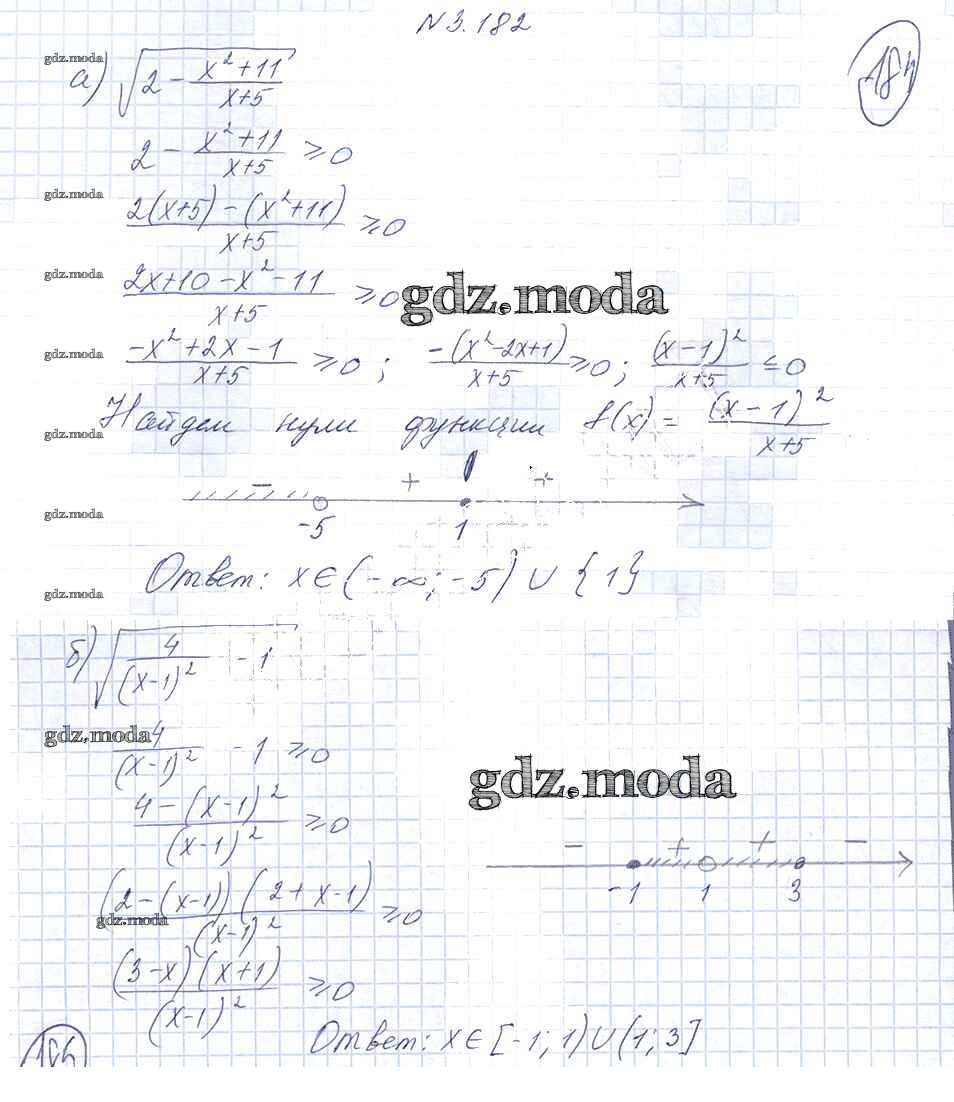 N 3.182
184
gdz.moda
а) √(2 - (x²+11)/(x+5))
2 - (x²+11)/(x+5) ≥ 0
gdz.moda
(2(x+5) - (x²+11))/(x+5) ≥ 0
gdz.moda
(2x+10-x²-11)/(x+5) ≥ 0
gdz.moda
gdz.moda
(-x²+2x-1)/(x+5) ≥ 0; (-(x²-2x+1))/(x+5) ≥ 0; (x-1)²/(x+5) ≤ 0
Найдем нули функции f(x) = (x-1)²/(x+5)
gdz.moda
- + +
-5 1
gdz.moda
Ответ: x∈(-∞; -5) ∪ {1}
gdz.moda
б) √(4/(x-1)² - 1)
gdz.moda
4/(x-1)² - 1 ≥ 0
gdz.moda
(4-(x-1)²)/(x-1)² ≥ 0
- + + -
-1 1 3
((2-(x-1))(2+x-1))/(x-1)² ≥ 0
gdz.moda
((3-x)(x+1))/(x-1)² ≥ 0
Ответ: x∈[-1; 1)∪(1; 3]